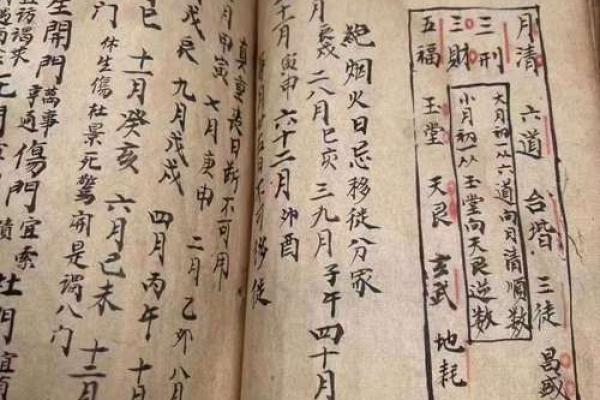 月清 六道 台堦 三徒 昌盛
三刑
三財
五福 玉堂 天良 玄武 地耗
大月初一从六道向月清順数
小月初一从玉堂向天良逆数
絕烟火日忌移徙分家
辰戌 二八月 巳亥 三九月 子午 四十月
十一月 寅申 六十二月 卯酉
移徙
真重丧日断不可用
月甲寅 七月庚申 二月乙卯 八月
戊辰 九月戊戌 四月丙午 十
巳 十一月癸亥 六月己未 十二月
門 休生傷杜景死驚開是谓八门
生開門 萬事通 傷門 宜索
訪谒求
杜門宜